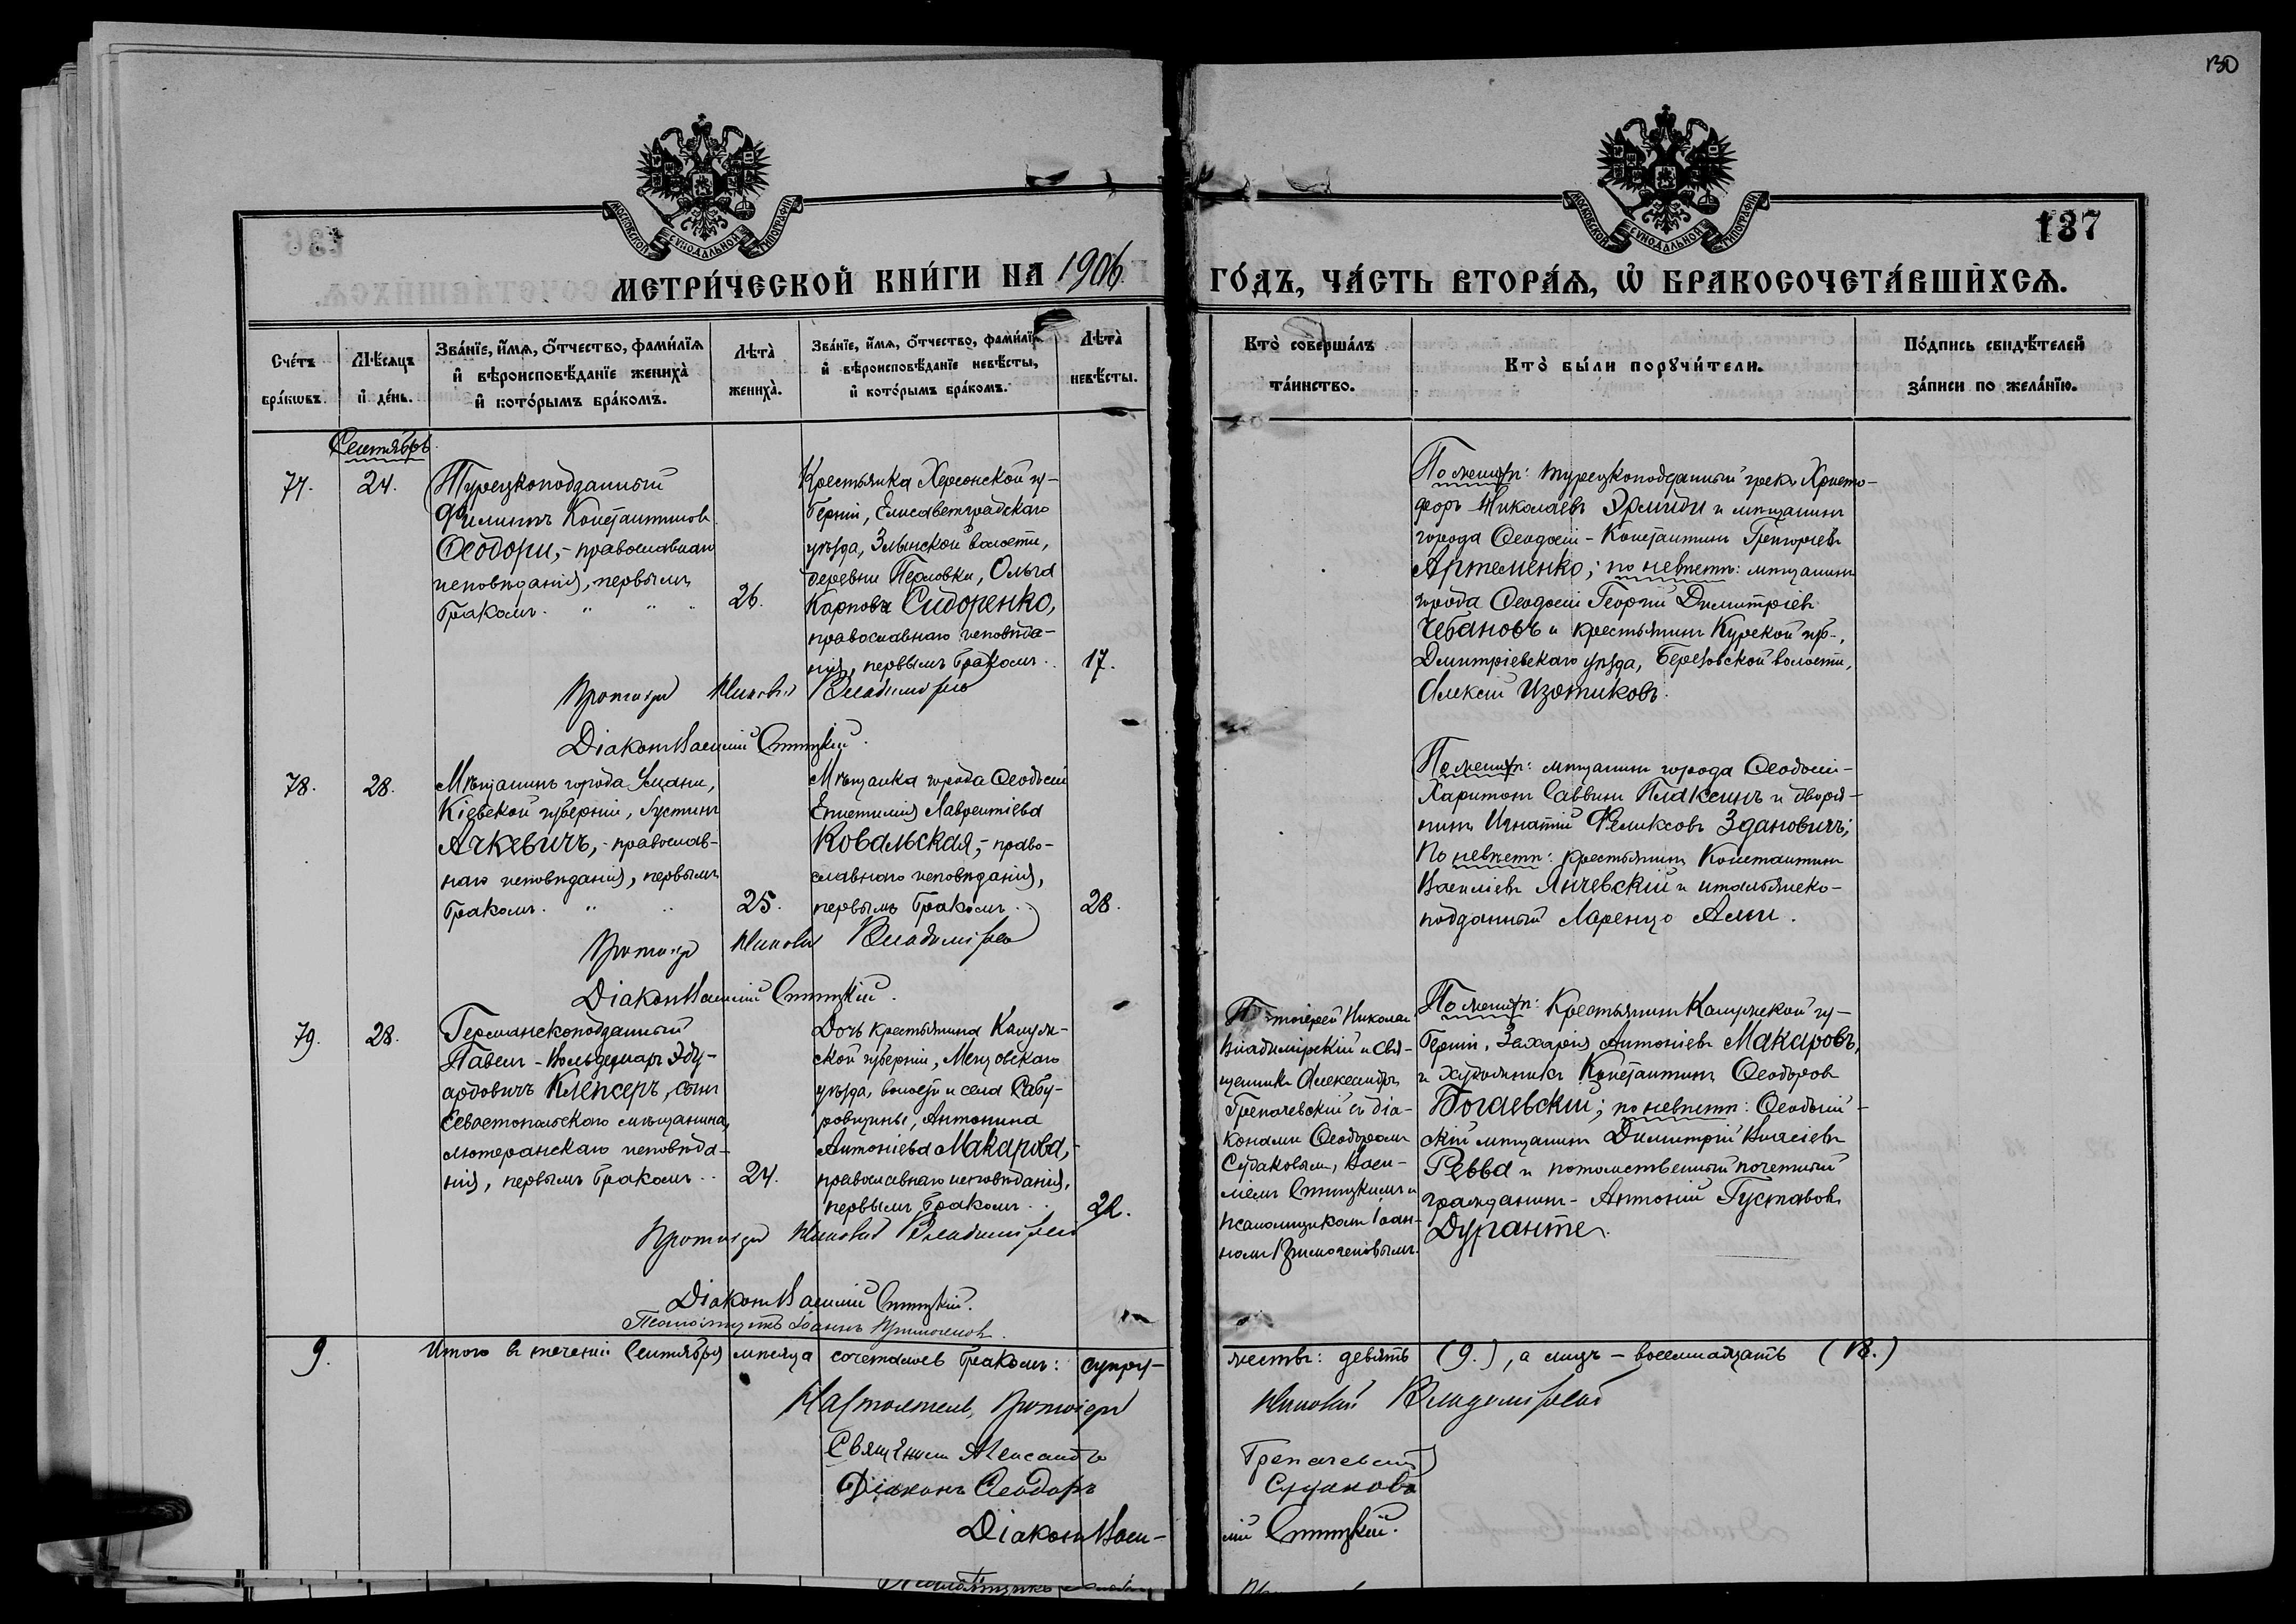 130
МОСКОВСКОЙ СѴНОДАЛЬНОЙ ТИПОГРАФІИ
МОСКОВСКОЙ СѴНОДАЛЬНОЙ ТИПОГРАФІИ
137
МЕТРИ́ЧЕСКОЙ КНИ́ГИ НА 1906.
ГО́ДЪ, ЧА́СТЬ ВТОРА́Ѧ, Ѡ҆ БРАКОСОЧЕТА́ВШИХСѦ.
Сче́тъ
бра́кѡвъ.
Мѣ́сѧцъ
и҆ де́нь.
Зва́нїе, и҆́мѧ, о҆́тчество, фами́лїѧ
и҆ вѣроисповѣ́данїе жениха̀
и҆ кото́рымъ бра́комъ.
Лѣта̀
жениха̀.
Зва́нїе, и҆́мѧ, о҆́тчество, фами́лїѧ
и҆ вѣроисповѣ́данїе невѣ́сты,
и҆ кото́рымъ бра́комъ.
Лѣта̀
невѣ́сты.
Кто̀ соверша́лъ
та́инство.
Кто̀ бы́ли порꙋчи́тели.
По́дпись свидѣ́телей
за́писи по жела́нїю.
Сентябрь.
77.
24.
Турецкоподданный
Филиппъ Константиновъ
Ѳеодори, - православнаго
исповѣданія, первымъ
бракомъ. " " "
26.
Крестьянка Херсонской гу-
берніи, Елисаветградскаго
уѣзда, Злынской волости,
деревни Перловки, Ольга
Карпова Сидоренко,
православнаго исповѣда-
нія, первымъ бракомъ..
17.
По женихѣ: турецкоподданный грекъ Христо-
форъ Николаевъ Эрмиди и мѣщанинъ
города Ѳеодосіи - Константинъ Григорьевъ
Артеменко; по невѣстѣ: мѣщанинъ
города Ѳеодосіи Георгій Димитріевъ
Чебановъ и крестьянинъ Курской губ-,
Дмитріевскаго уѣзда, Березовской волости,
Алексій Изотиковъ.
Протоіерей Николай Владимірскій
Діаконъ Василій
78.
28.
Мѣщанинъ города Умани,
Кіевской губерніи, Іустинъ
Ачкевичъ, - православ-
наго исповѣданія, первымъ
бракомъ. " "
25.
Мѣщанка города Ѳеодосіи
Епистимія Лаврентіева
Ковальская, - право-
славнаго исповѣданія,
первымъ бракомъ..
28.
По женихѣ: мѣщанинъ города Ѳеодосіи -
Харитонъ Саввинъ Плаксинъ и дворя-
нинъ Игнатій Феликсовъ Здановичъ;
По невѣстѣ: крестьянинъ Константинъ
Василіевъ Личевскій и итальянско-
подданный Лоренцо Алии.
Протоіерей Николай Владимірскій
Діаконъ Василій
79.
28.
Германскоподданный
Павелъ-Вольдемаръ Эду-
ардовичъ Клепсеръ, сынъ
Севастопольскаго мѣщанина,
лютеранскаго исповѣда-
нія, первымъ бракомъ..
24.
Дочь крестьянина Калуж-
ской губерніи, Мещовскаго
уѣзда, волости и села Сабу-
ровщины, Антонина
Антоніева Макарова, -
православнаго исповѣданія,
первымъ бракомъ..
22.
Протоіерей Николай
Владимірскій и Свя-
щенникъ Александръ
Грепачевскій съ діа-
конами Ѳеодоромъ
Судаковымъ, Васи-
ліемъ и
псаломщикомъ Іоан-
номъ
По женихѣ: крестьянинъ Калужской гу-
берніи, Захарія Антоніевъ Макаровъ,
и художникъ Константинъ Ѳеодоровъ
Богаевскій; по невѣстѣ: Ѳеодосій-
скій мѣщанинъ Димитрій Власіевъ
Ревва и потомственный почетный
гражданинъ - Антоній Густавовъ
Дуранте.
Протоіерей Николай Владимірскій
Діаконъ Василій
Псаломщикъ Іоаннъ
9.
Итого въ теченіи Сентября мѣсяца сочеталось бракомъ: супру-
жествъ: девять (9.), а лицъ - восемнадцать (18.)
Настоятель, Протоіерей Николай Владимірскій
Священникъ Александръ Грепачевскій
Діаконъ Ѳеодоръ Судаковъ
Діаконъ Васи-
лій
Псаломщикъ